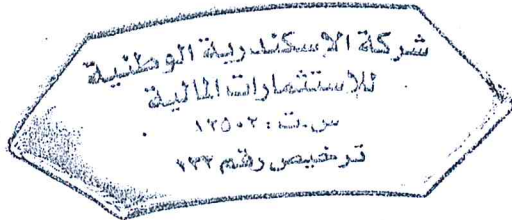 شركة الاسكندرية الوطنية
للاستثمارات المالية
س.ت: ١٢٥٠٢
ترخيص رقم ٧٣٢